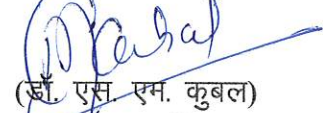 (डॉ. एस. एम. कुबल)